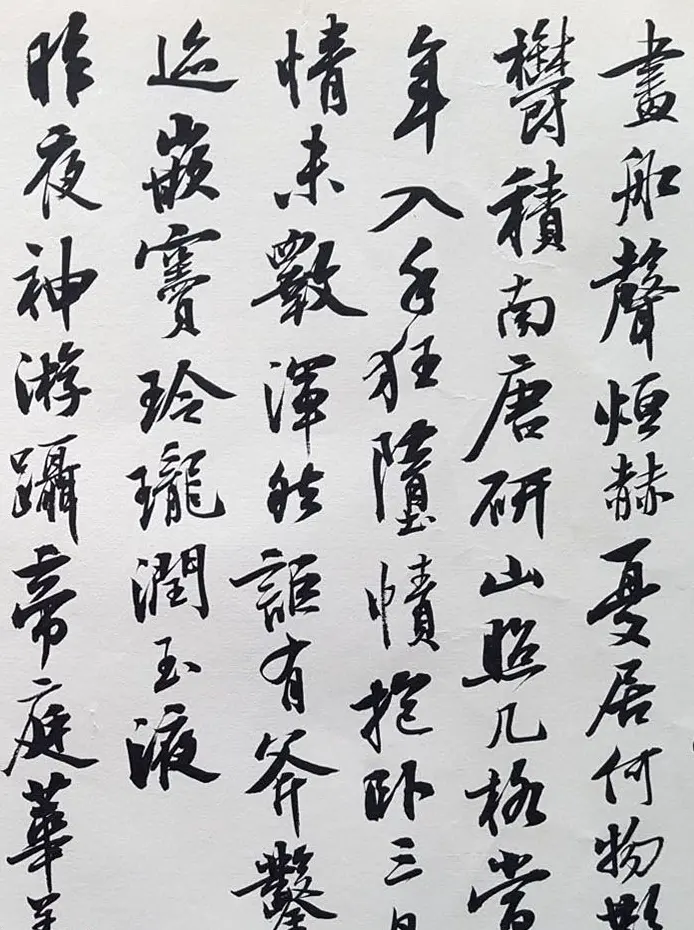 畫船聲烜赫憂居何物
欝積南唐研山照几格當
年入手狂墮幘抱卧三日
情未斁渾然詎有斧鑿
迹嵌竇玲瓏潤玉液
昨夜神游躡帝庭華